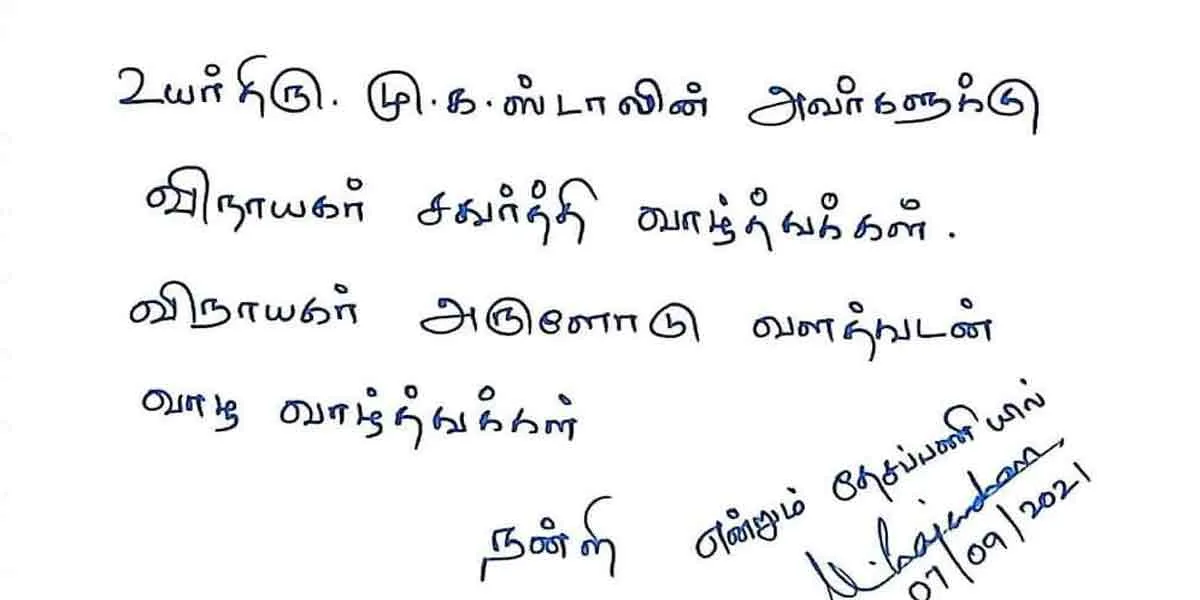 உயர்திரு. மு.க.ஸ்டாலின் அவர்களுக்கு
விநாயகர் சதுர்த்தி வாழ்த்துக்கள்.
விநாயகர் அருளோடு வளத்துடன்
வாழ வாழ்த்துக்கள்
நன்றி
என்றும் தேசப்பணியில்
07/09/2021